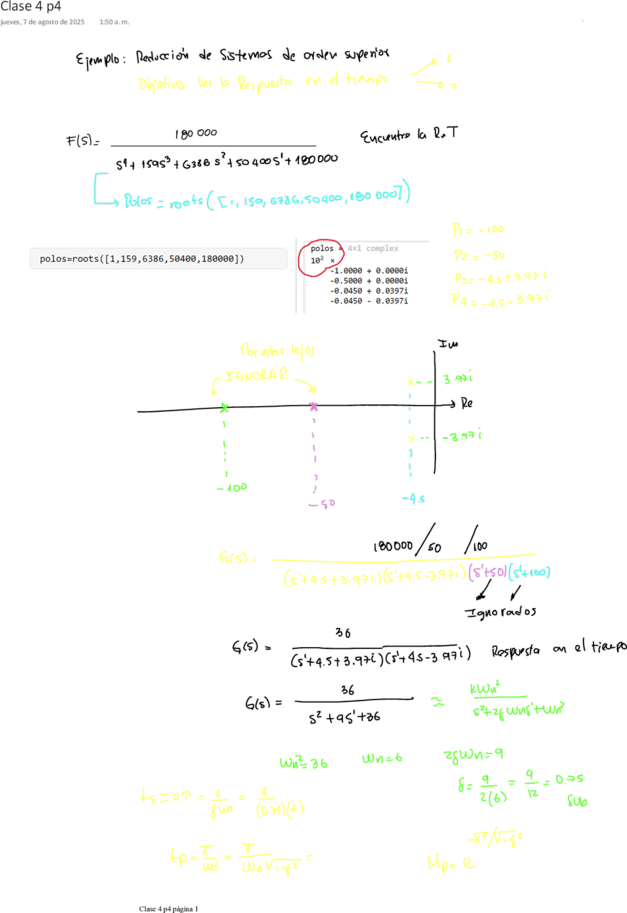 Clase 4 p4
jueves, 7 de agosto de 2025 1:50 a. m.
Ejemplo: Reducción de Sistemas de orden superior
Objetivo: Ver la Respuesta en el tiempo
1
2
F(s) = 180 000 / s⁴ + 159s³ + 6386 s² + 50400s' + 180000
Encuentre la R.T
Polos = roots([1, 159, 6386, 50400, 180 000])
polos=roots([1,159,6386,50400,180000])
polos = 4×1 complex
10² ×
-1.0000 + 0.0000i
-0.5000 + 0.0000i
-0.0450 + 0.0397i
-0.0450 - 0.0397i
P₁ = -100
P₂ = -50
P₃ = -4.5+3.97i
P₄ = -4.5-3.97i
Por estar lejos
IGNORAR
Im
3.97i
Re
-3.97i
-100
-50
-4.5
G(s) = 180000/50 /100 / (s'+4.5+3.97i)(s'+4.5-3.97i)(s'+50)(s'+100)
Ignorados
G(s) = 36 / (s'+4.5+3.97i)(s'+4.5-3.97i) Respuesta en el tiempo
G(s) = 36 / s²+9s'+36 ≈ kWn² / s²+2ζWns'+Wn²
Wn²=36 Wn=6 2ζWn=9
ζ = 9/2(6) = 9/12 = 0.75
sub
= 4/ζWn = 4/(0.75)(6)
tp = π/Wd = π/Wn√1-ζ² =
Mp = e